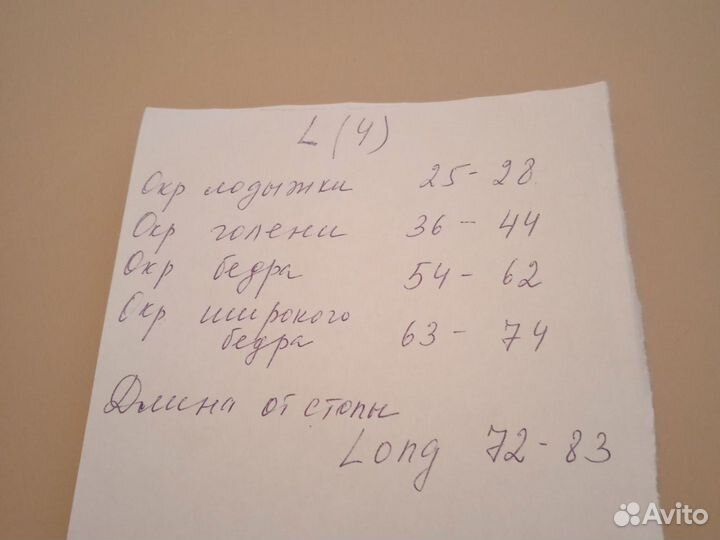 L (4)
Окр лодыжки 25 - 28
Окр голени 36 - 44
Окр бедра 54 - 62
Окр широкого
бедра 63 - 74
Длина от стопы
Long 72 - 83
Avito